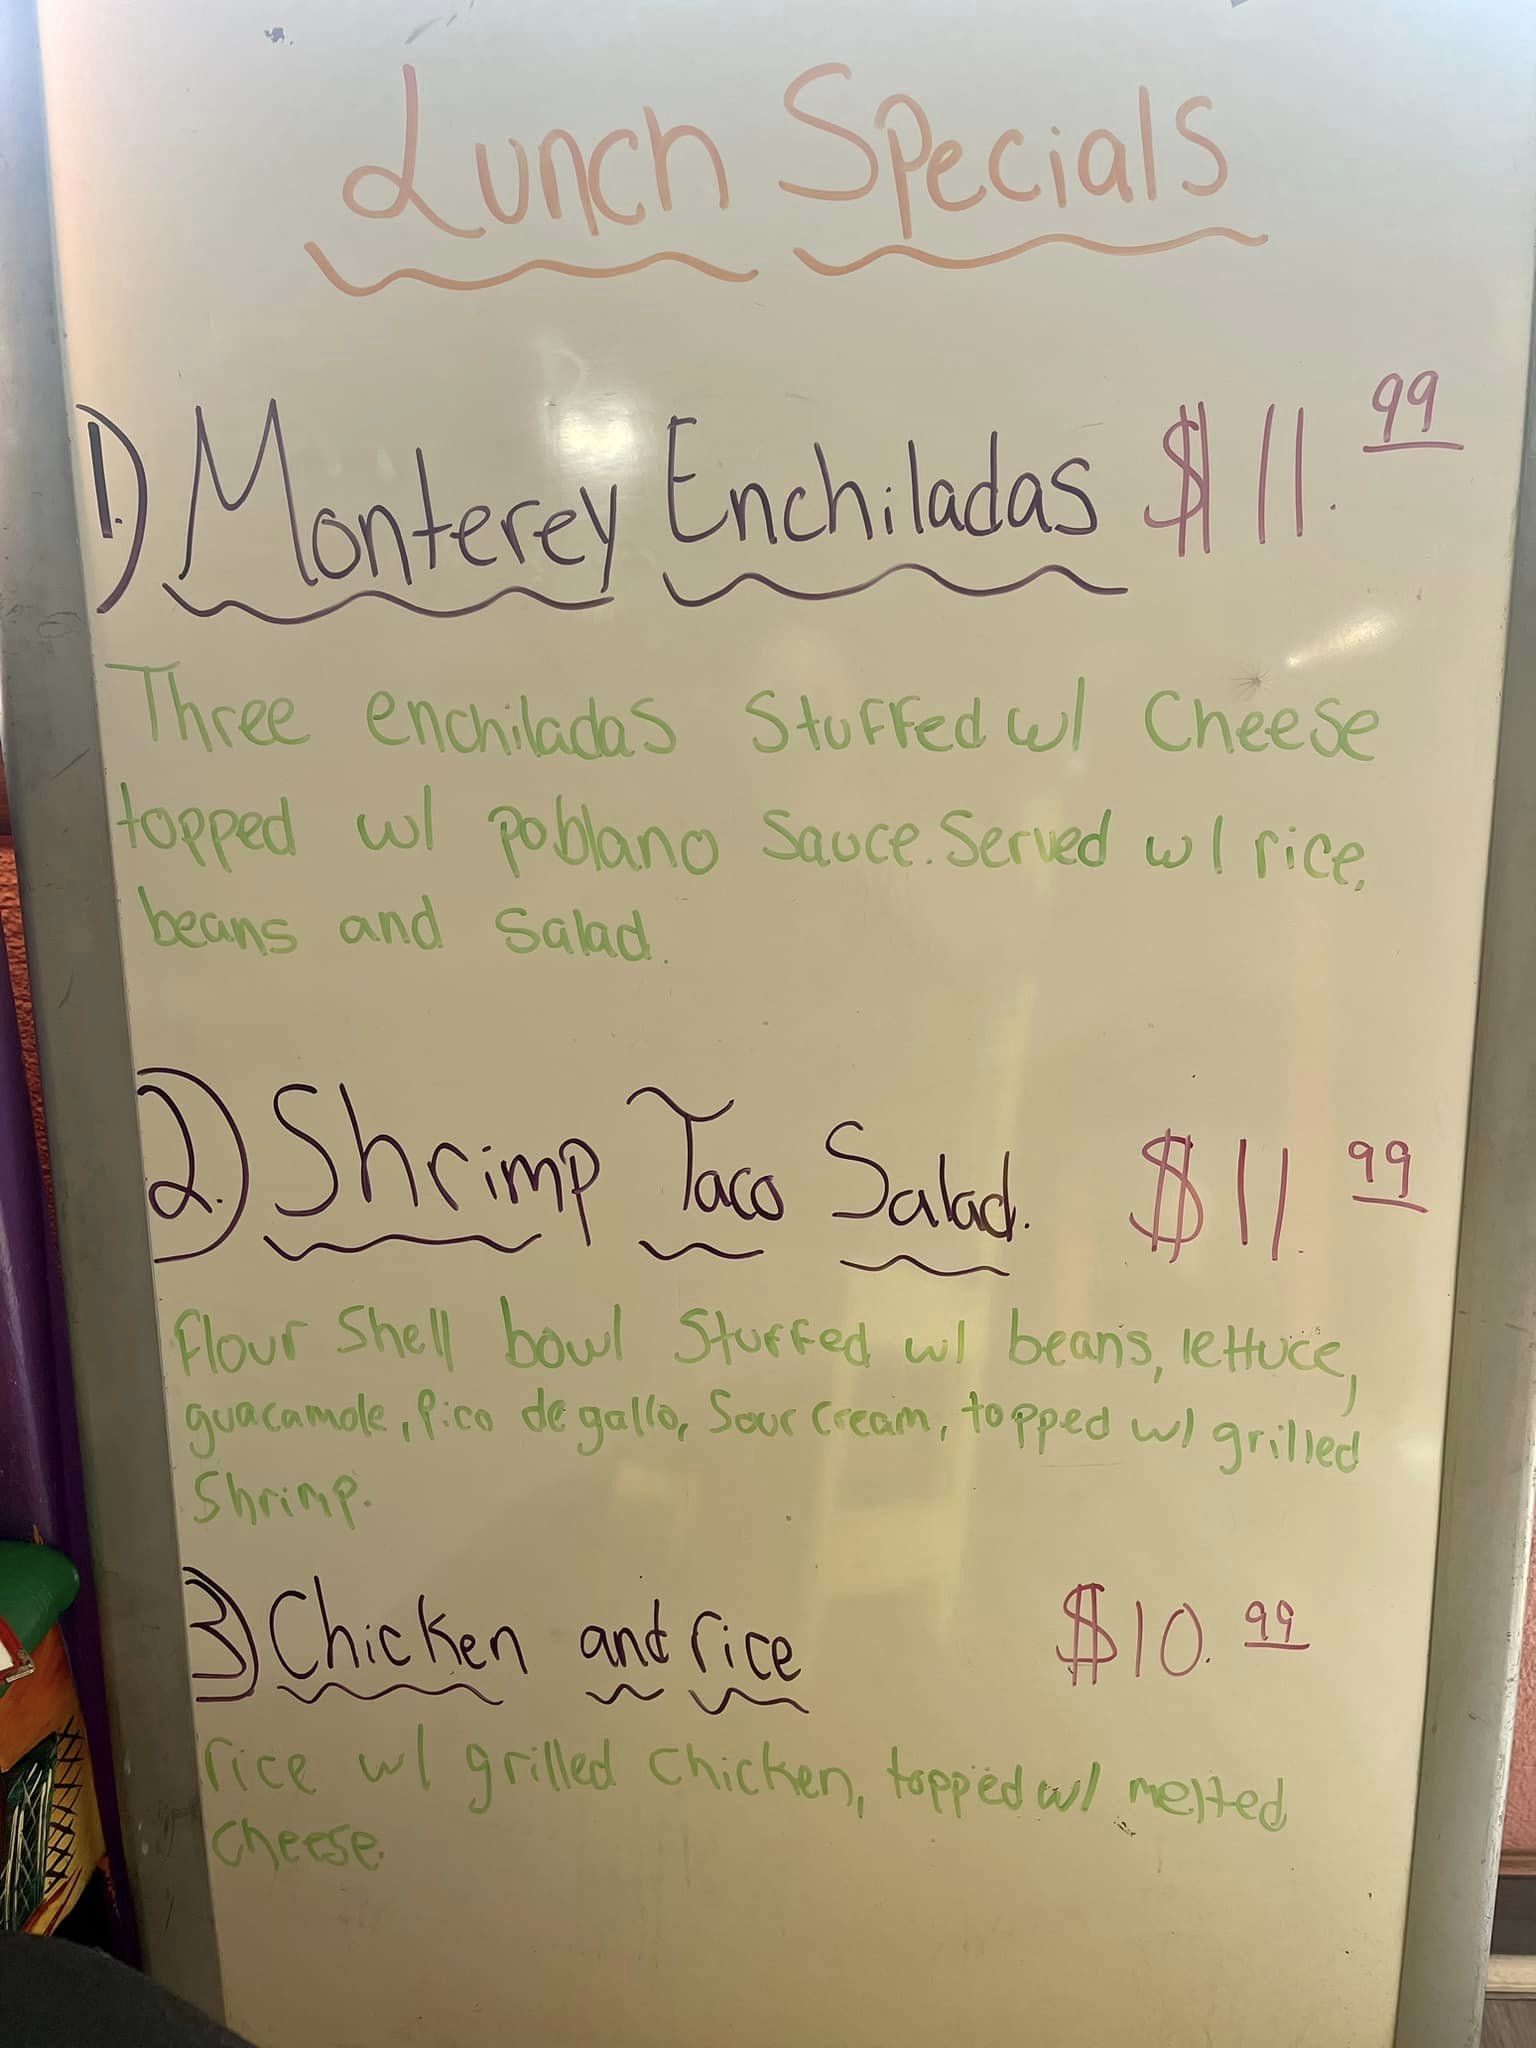 Lunch Specials
1.) Monterey Enchiladas $11.99
Three enchiladas stuffed w/ cheese
topped w/ poblano sauce. Served w/ rice,
beans and salad.
2.) Shrimp Taco Salad. $11.99
flour shell bowl stuffed w/ beans, lettuce,
guacamole, pico de gallo, sour cream, topped w/ grilled
shrimp.
3) Chicken and rice $10.99
rice w/ grilled chicken, topped w/ melted
cheese.